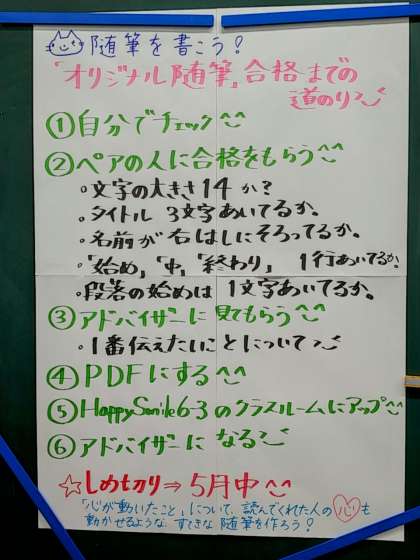 随筆を書こう！
「オリジナル随筆」合格までの
道のり
①自分でチェック^^
②ペアの人に合格をもらう^^
・文字の大きさ14か？
・タイトル 3文字あいてるか。
・名前が右はしにそろってるか。
・「始め」「中」「終わり」 1行あいてるか。
・段落の始めは1文字あいてるか。
③アドバイザーに見てもらう^^
・1番伝えたいことについて
④PDFにする^^
⑤HappySmile6-3のクラスルームにアップ^^
⑥アドバイザーになる
☆しめ切り⇒5月中^^
「心が動いたこと」について、読んでくれた人の心も
動かせるような、すてきな随筆を作ろう！